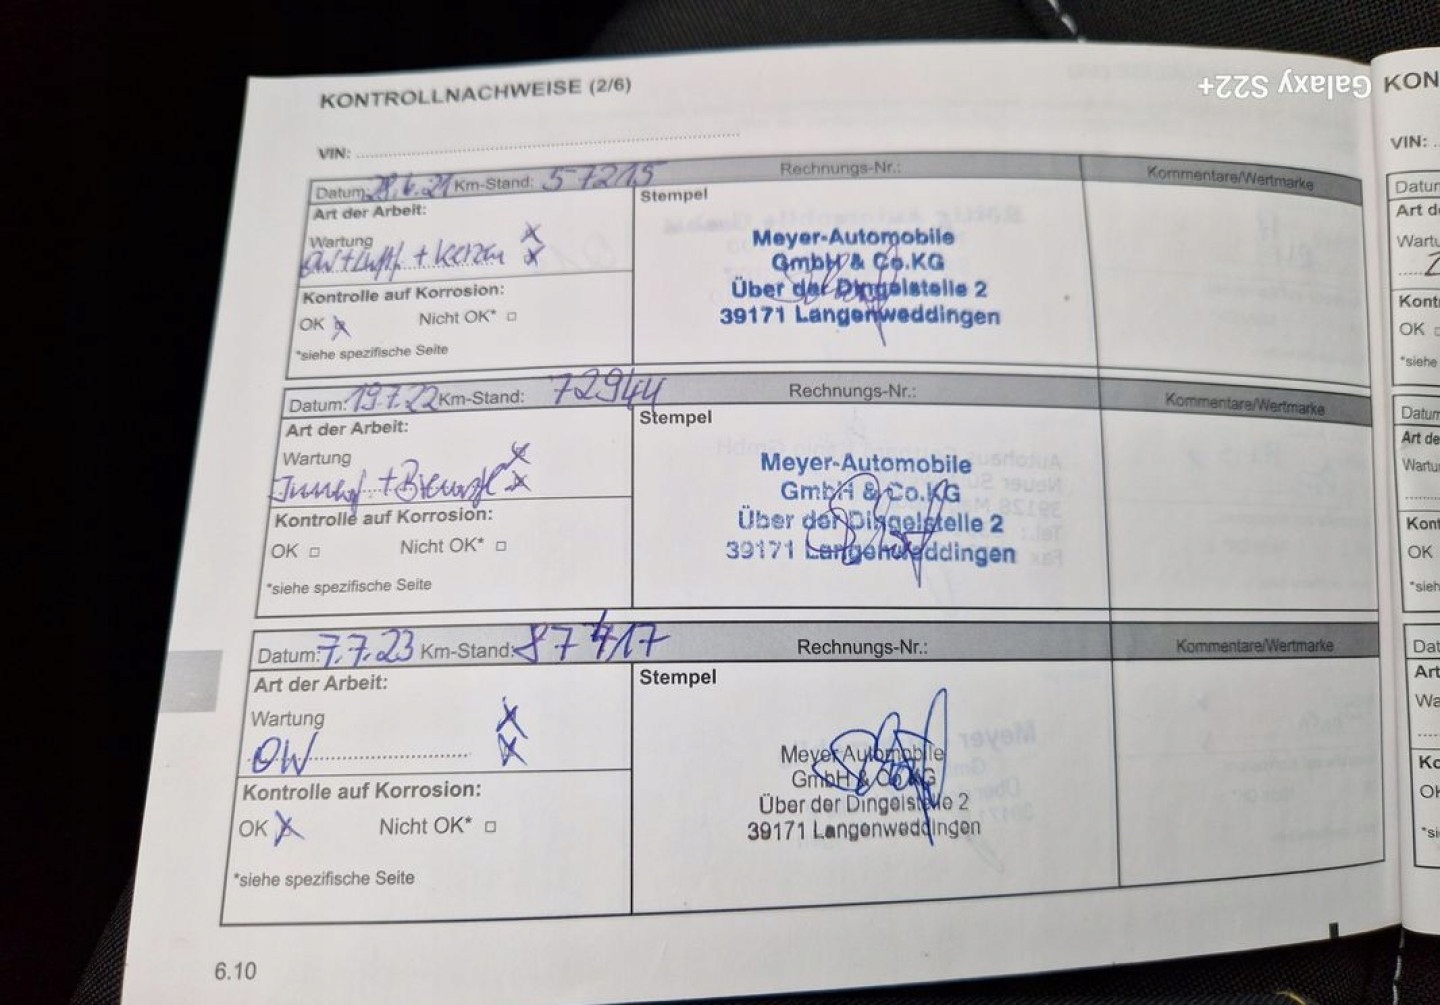 Galaxy S22+
KONTROLLNACHWEISE (2/6)
VIN:
Datum: 28.6.21 Km-Stand: 57215 Rechnungs-Nr.: Kommentare/Wertmarke
Art der Arbeit: Stempel
Wartung x
+ Luftf. + Kerzen x
Meyer-Automobile
GmbH & Co.KG
Über der Dingelstelle 2
39171 Langenweddingen
Kontrolle auf Korrosion:
OK x Nicht OK* □
*siehe spezifische Seite
Datum: 19.7.22 Km-Stand: 72944 Rechnungs-Nr.: Kommentare/Wertmarke
Art der Arbeit: Stempel
Wartung x
+ x
Meyer-Automobile
GmbH & Co.KG
Über der Dingelstelle 2
39171 Langenweddingen
Kontrolle auf Korrosion:
OK □ Nicht OK* □
*siehe spezifische Seite
Datum: 7.7.23 Km-Stand: 87417 Rechnungs-Nr.: Kommentare/Wertmarke
Art der Arbeit: Stempel
Wartung x
OW x
Meyer-Automobile
GmbH & Co.KG
Über der Dingelstelle 2
39171 Langenweddingen
Kontrolle auf Korrosion:
OK x Nicht OK* □
*siehe spezifische Seite
6.10
KON
VIN:
Datum
Art de
Wartu
Kont
OK
*siehe
Datum
Art de
Wartu
Kont
OK
*sieh
Dat
Art
Wa
Ko
OK
*si